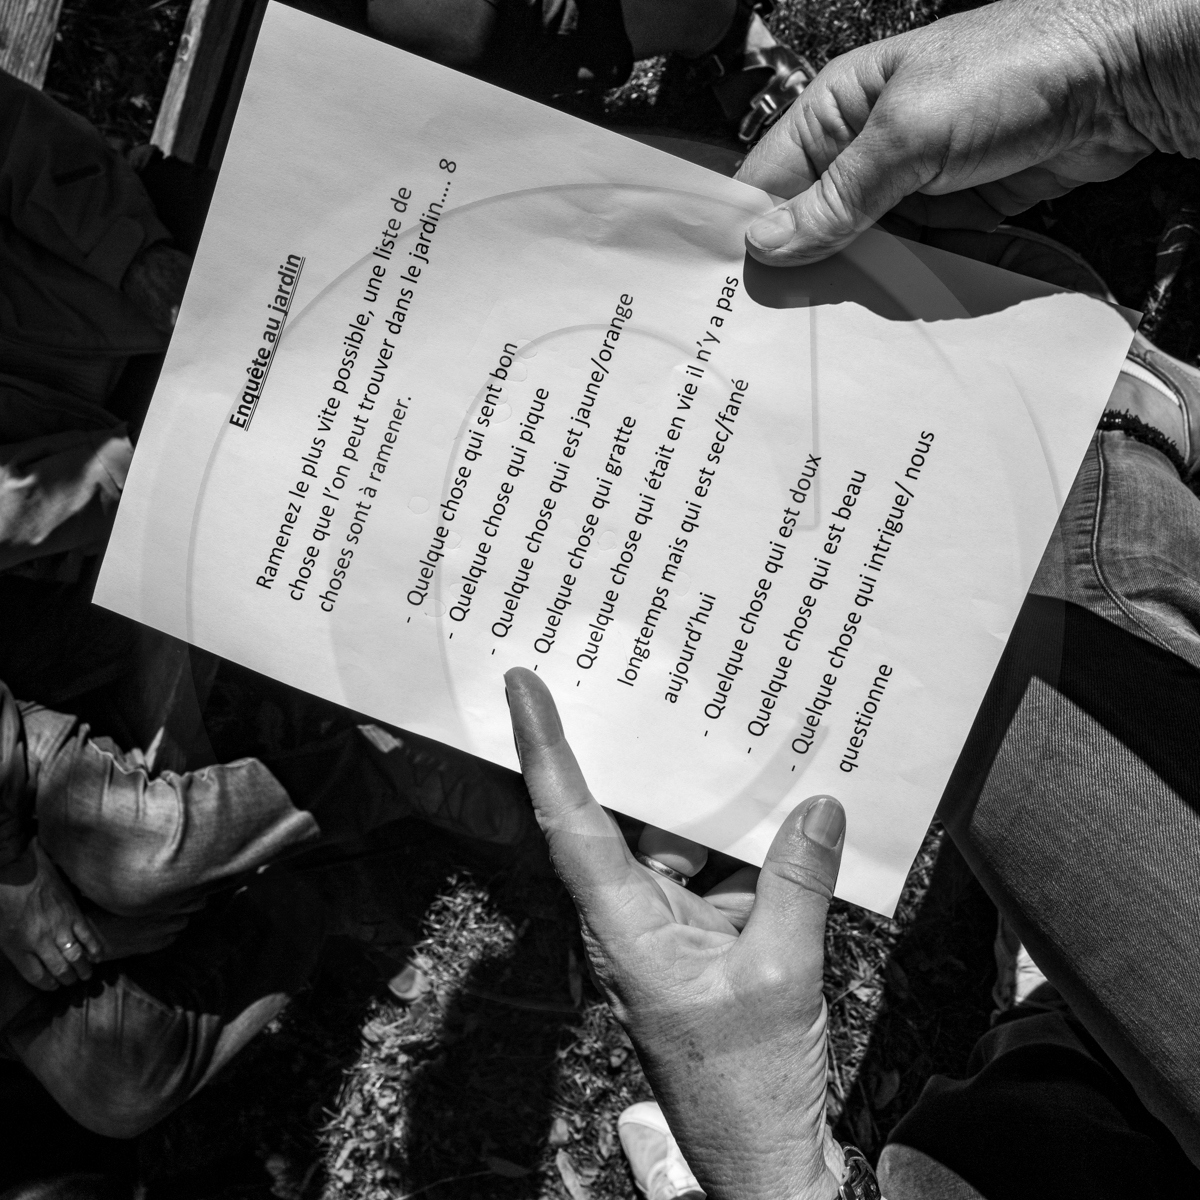 Enquête au jardin
Ramenez le plus vite possible, une liste de
chose que l'on peut trouver dans le jardin.... 8
choses sont à ramener.
- Quelque chose qui sent bon
- Quelque chose qui pique
- Quelque chose qui est jaune/orange
- Quelque chose qui gratte
- Quelque chose qui était en vie il n'y a pas
longtemps mais qui est sec/fané
aujourd'hui
- Quelque chose qui est doux
- Quelque chose qui est beau
- Quelque chose qui intrigue/ nous
questionne